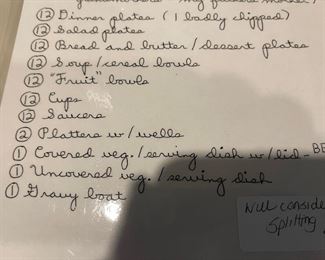 ⑫ Dinner plates (1 badly chipped)
⑫ Salad plates
⑫ Bread and butter / dessert plates
⑫ Soup/cereal bowls
⑫ "Fruit" bowls
⑫ Cups
⑫ Saucers
② Platters w/wells
① Covered veg./serving dish w/lid - BE
① Uncovered veg./serving dish
① Gravy boat
Will conside
splitting